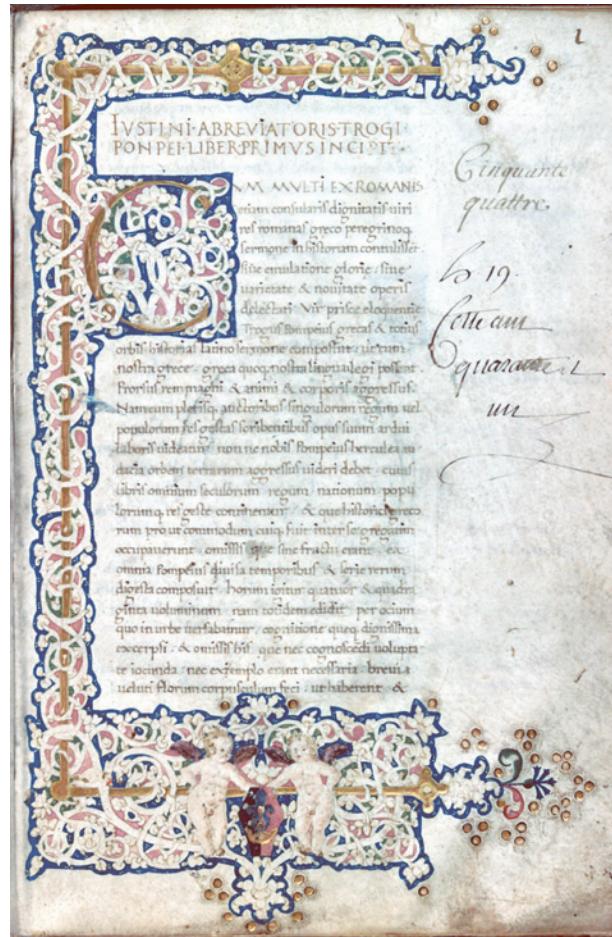 1
IVSTINI·ABREVIATORIS·TROGI·
PONPEI·LIBER·PRIMVS·INCIPT·
CVM MVLTI EX ROMANIS
etiam consularis dignitatis uiri
res romanas greco peregrinoq
sermone in historiam contulisset
siue emulatione glorie siue
uarietate & nouitate operis
delectati Vir prisce eloquentie
Trogus Pompeius grecas & totius
orbis historias latino sermone composuit ut cum
nostra grece greca quoq nostra lingua legi possent
Prorsus rem magni & animi & corporis aggressus
Nam cum plerisq auctoribus singulorum regum uel
populorum res gestas scribentibus opus suum ardui
laboris uideatur nonne nobis Pompeius herculea au
dacia orbem terrarum aggressus uideri debet cuius
libris omnium seculorum regum nationum popu
lorumq res geste continentur & que historici greco
rum pro ut commodum cuiq fuit inter se
occupauerunt omissis que sine fructu erant ea
omnia Pompeius diuisa temporibus & serie rerum
digesta composuit horum igitur quatuor & quadra
ginta uoluminum nam totidem edidit per ocium
quo in urbe uersabamur cognitione queq dignissima
excerpsi & omissis his que nec cognoscendi uolupta
te iocunda nec exemplo erant necessaria breuia
ueluti florum corpusculum feci ut haberent &
Cinquante
quattre
19